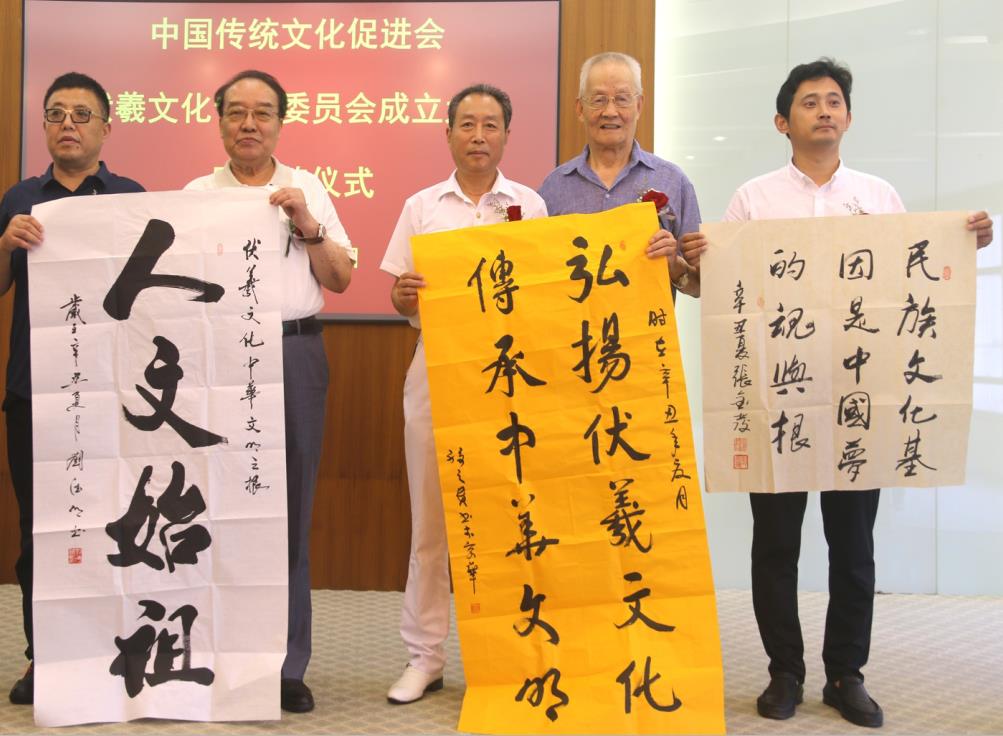 中国传统文化促进会
羲文化 委员会成立
仪式
伏羲文化中華文明之根
人文始祖
歲在辛丑夏月劉德明书
时在辛丑年夏月
弘揚伏羲文化
傳承中華文明
民族文化基
因是中國夢
的魂與根
辛丑夏張金發